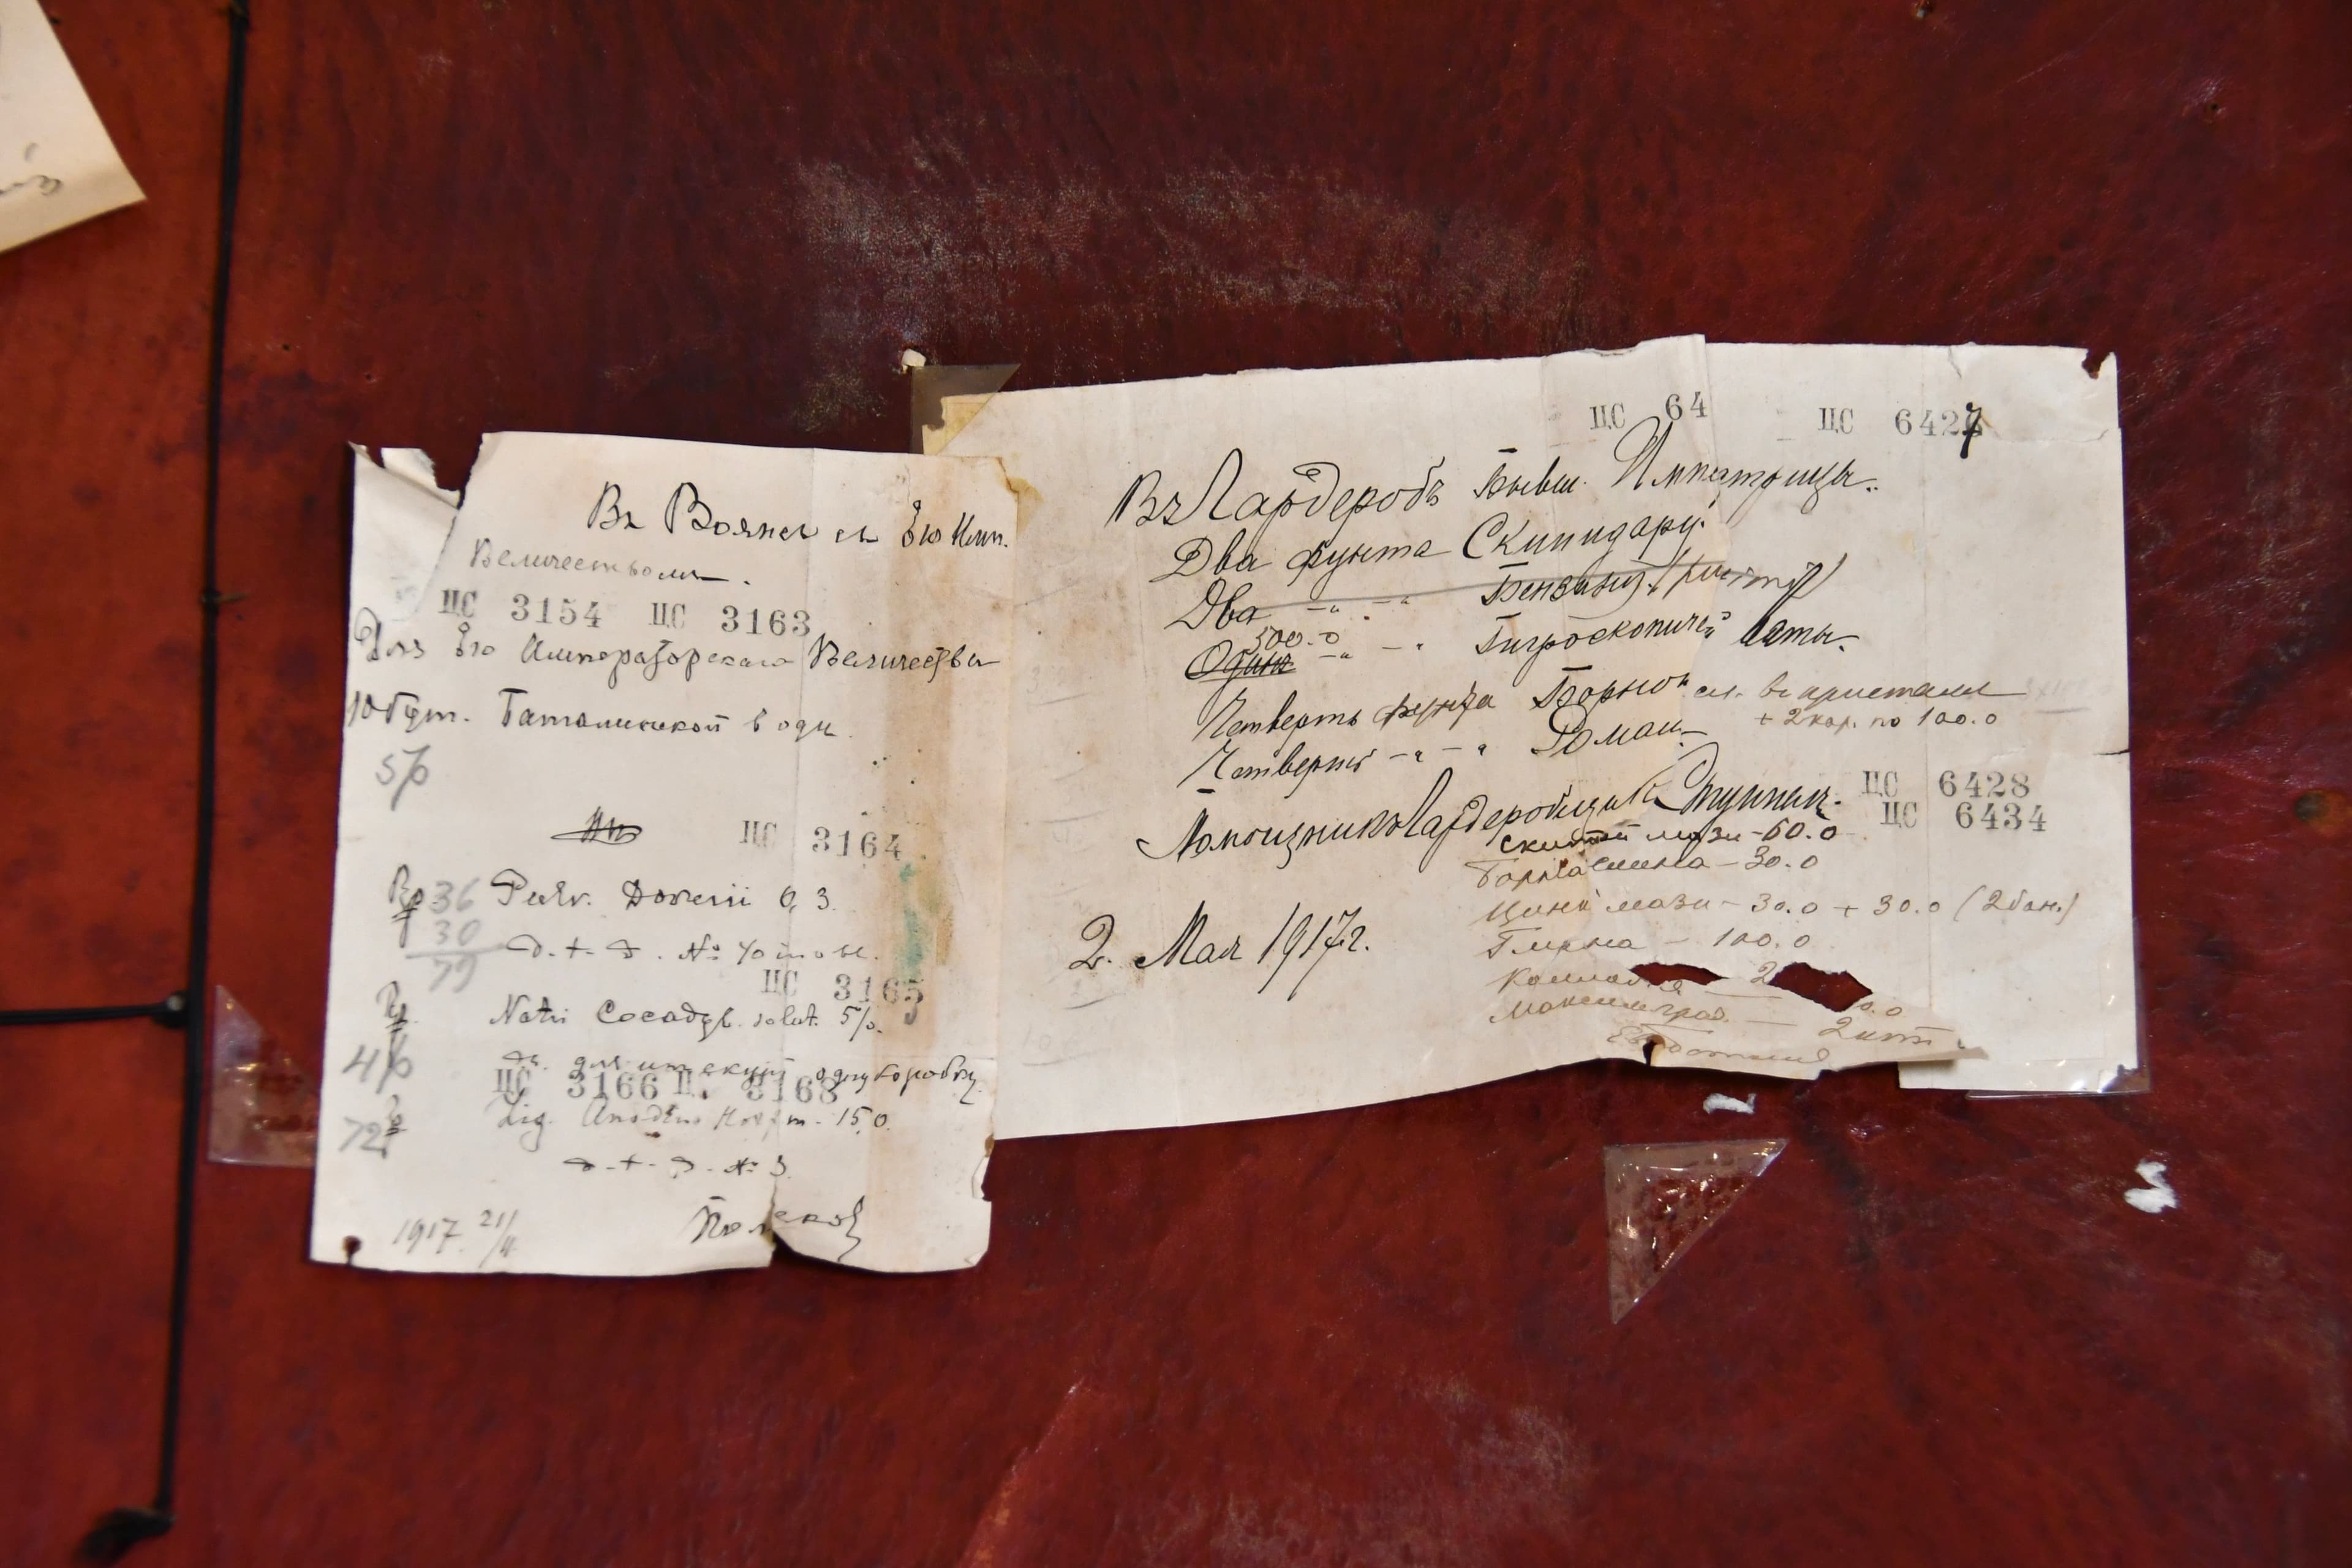 Въ Вояжъ съ Его Имп.
Величествомъ.
ЦС 3154 ЦС 3163
Для Его Императорскаго Величества
10 бут. Таталинской воды
5/6
ЦС 3164
Rp. 36 Pulv. Doverii 0,3.
30 D.t.D. №
79
ЦС 3165
Rp. Natri Cacodyl. solut. 5%.
4/6 D. для инъекций одну коробку.
ЦС 3166 ЦС 3168
72 Liq. Anodini Hoffm. 15,0.
D.t.D. № 3.
1917. 21/II
ЦС 64 ЦС 6427
Въ Гардеробъ Бывш. Императрицы.
Два фунта Скипидару.
Два -"- -" Бензину
500.0
Одинъ -"- -" Гигроскопичей Ваты.
Четверть фунта Борной въ кристалл
+ 2 кор. по 100.0
Четверть -"- -" Ромаш.
ЦС 6428
Помощникъ Гардеробщика
ЦС 6434
мази - 60.0
Борн вазелина - 30.0
Цинк мази - 30.0 + 30.0 (2 бан.)
2. Мая 1917 г.
Глицерина - 100.0
2
0.0
2 шт